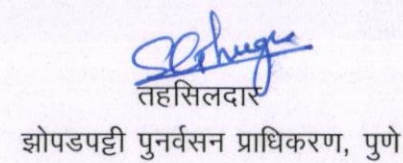 तहसिलदार
झोपडपट्टी पुनर्वसन प्राधिकरण, पुणे